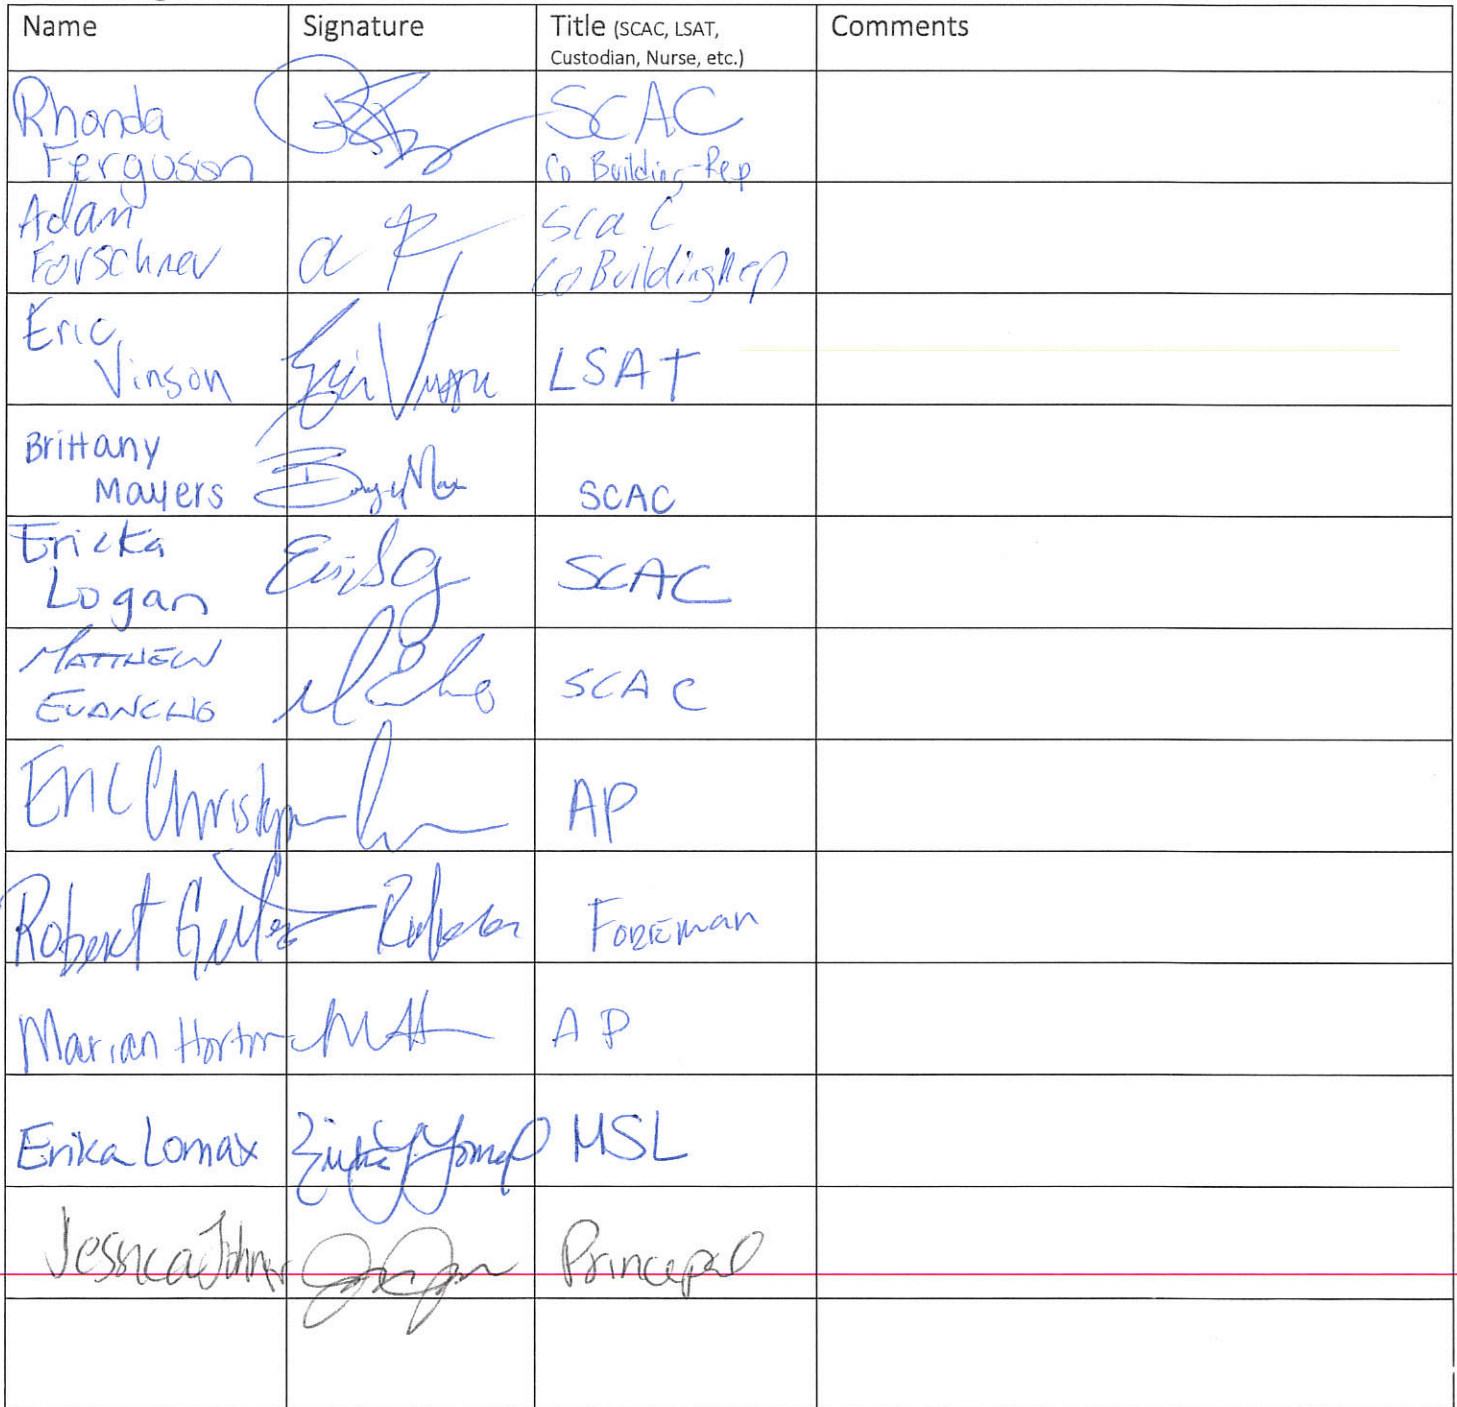 Name Signature Title (SCAC, LSAT, Comments
Custodian, Nurse, etc.)
Rhonda SCAC
Ferguson Co Building-Rep
Adam scac
Forschner Co Building Rep
Eric
Vinson Eric Vinson LSAT
Brittany
Mayers SCAC
Ericka
Logan SCAC
MATTHEW
EVANCHO SCAC
Eric AP
Robert Foreman
Marian Horton AP
Erika Lomax MSL
Jessica Johnson Principal